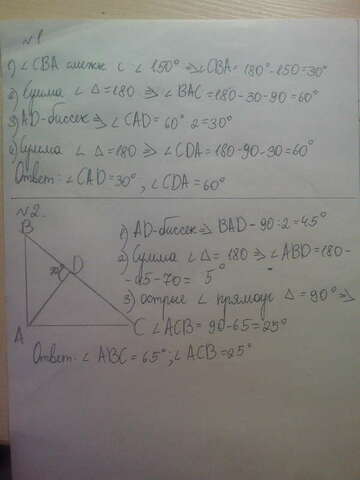 №1
1) ∠CBA смежн с ∠150° ⇒ ∠CBA = 180°-150=30°
2) Сумма ∠ Δ=180 ⇒ ∠BAC=180-30-90=60°
3) AD-биссек ⇒ ∠CAD = 60°:2=30°
4) Сумма ∠ Δ=180 ⇒ ∠CDA=180-90-30=60°
Ответ: ∠CAD=30°, ∠CDA=60°
№2.
B
1) AD-биссек ⇒ BAD-90:2=45°
2) Сумма ∠ Δ = 180 ⇒ ∠ABD=180-
D
70°
-45-70= 5°
3) Острые ∠ прямоуг Δ=90° ⇒
A
C
∠ACB=90-65=25°
Ответ: ∠ABC=65°; ∠ACB=25°